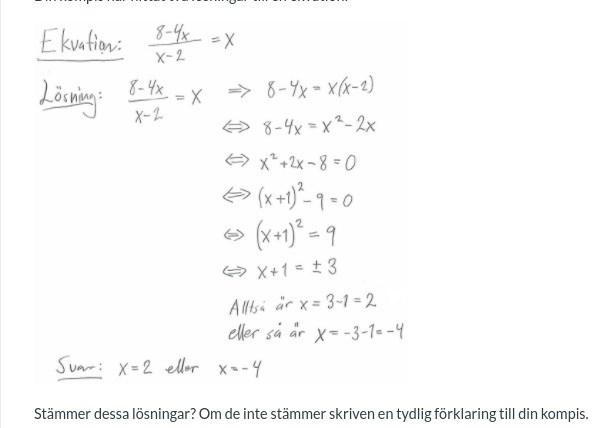 Ekvation: (8-4x)/(x-2) = x
Lösning: (8-4x)/(x-2) = x ⇒ 8-4x = x(x-2)
⇔ 8-4x = x²-2x
⇔ x²+2x-8=0
⇔ (x+1)²-9=0
⇔ (x+1)²=9
⇔ x+1=±3
Alltså är x=3-1=2
eller så är x=-3-1=-4
Svar: x=2 eller x=-4
Stämmer dessa lösningar? Om de inte stämmer skriven en tydlig förklaring till din kompis.